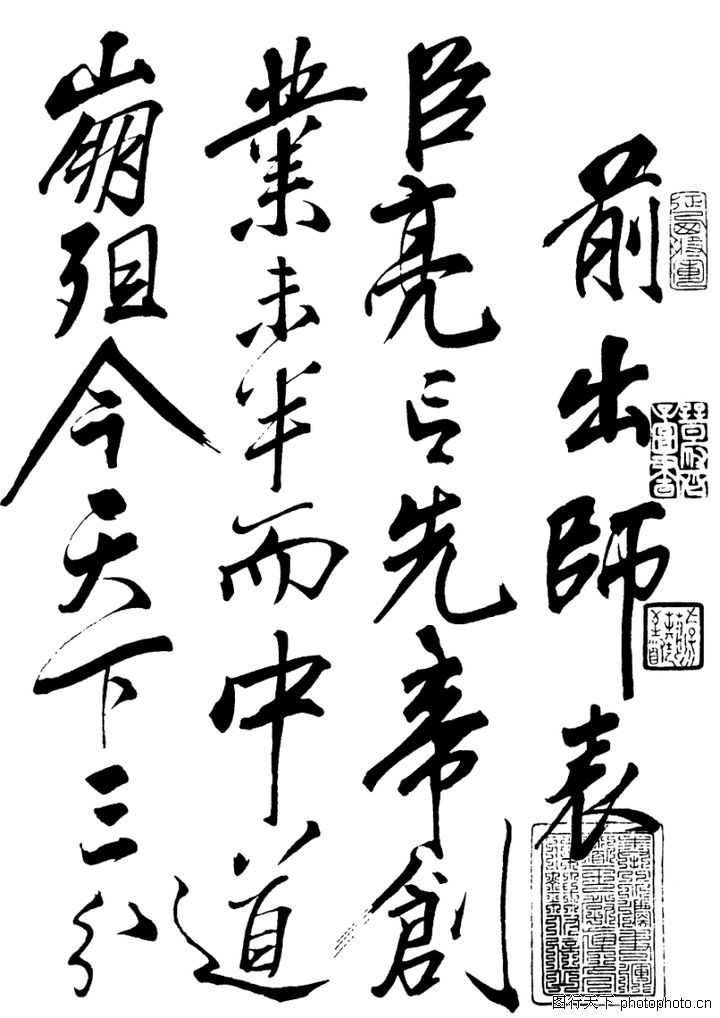 前出師表
臣亮言先帝創
業未半而中道
崩殂今天下三分
图行天下 photophoto.cn